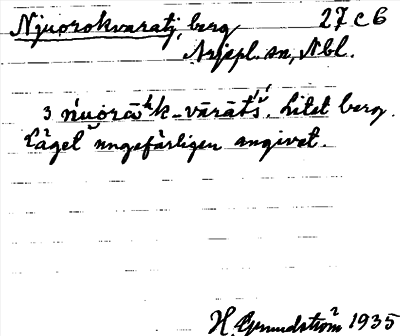 Njuorokvaratj, berg 27 c 6
Arjepl. sn, Nbl.
3 ńuorāʰk-vārāt́ś. Litet berg.
Läget ungefärligen angivet.
H. Grundström 1935